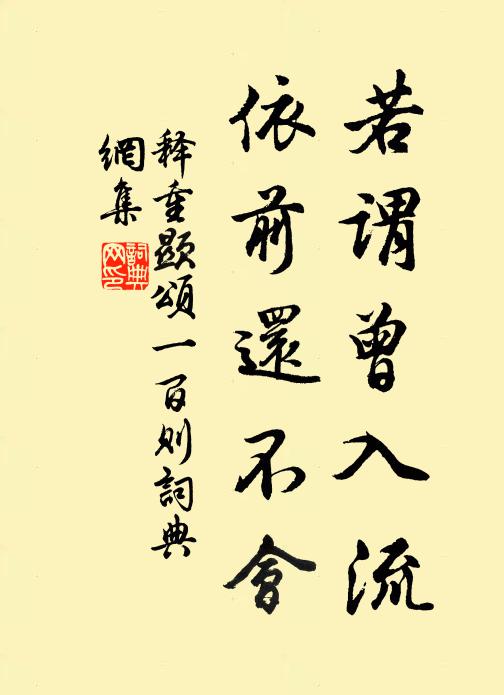 若謂曾入流
依前還不會
释重顯頌一百则詞典
網集
詞典
网印